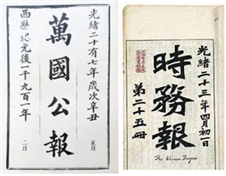 光緒二十有七年歲次辛丑
正月
萬國公報
西歷紀元後一千九百一年
光緒二十三年四月初一日
時務報
第二十五冊
The Chinese Progress